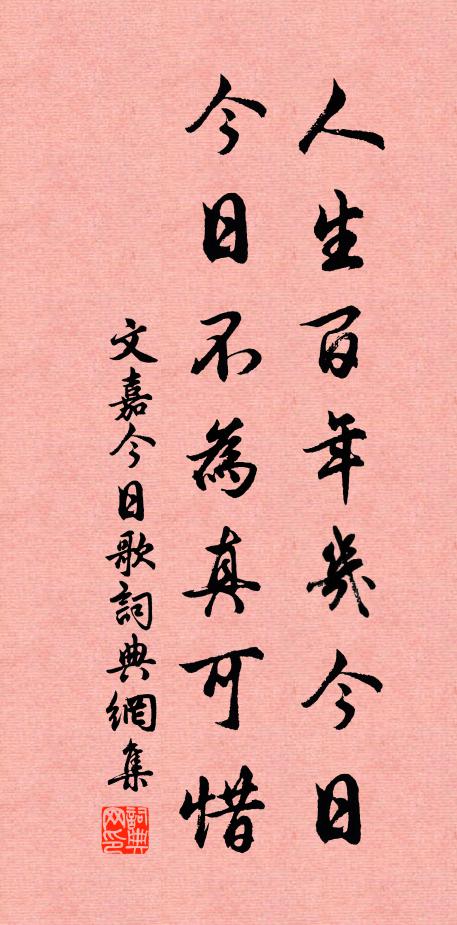 人生百年幾今日
今日不為真可惜
文嘉今日歌詞典網集
詞典网印